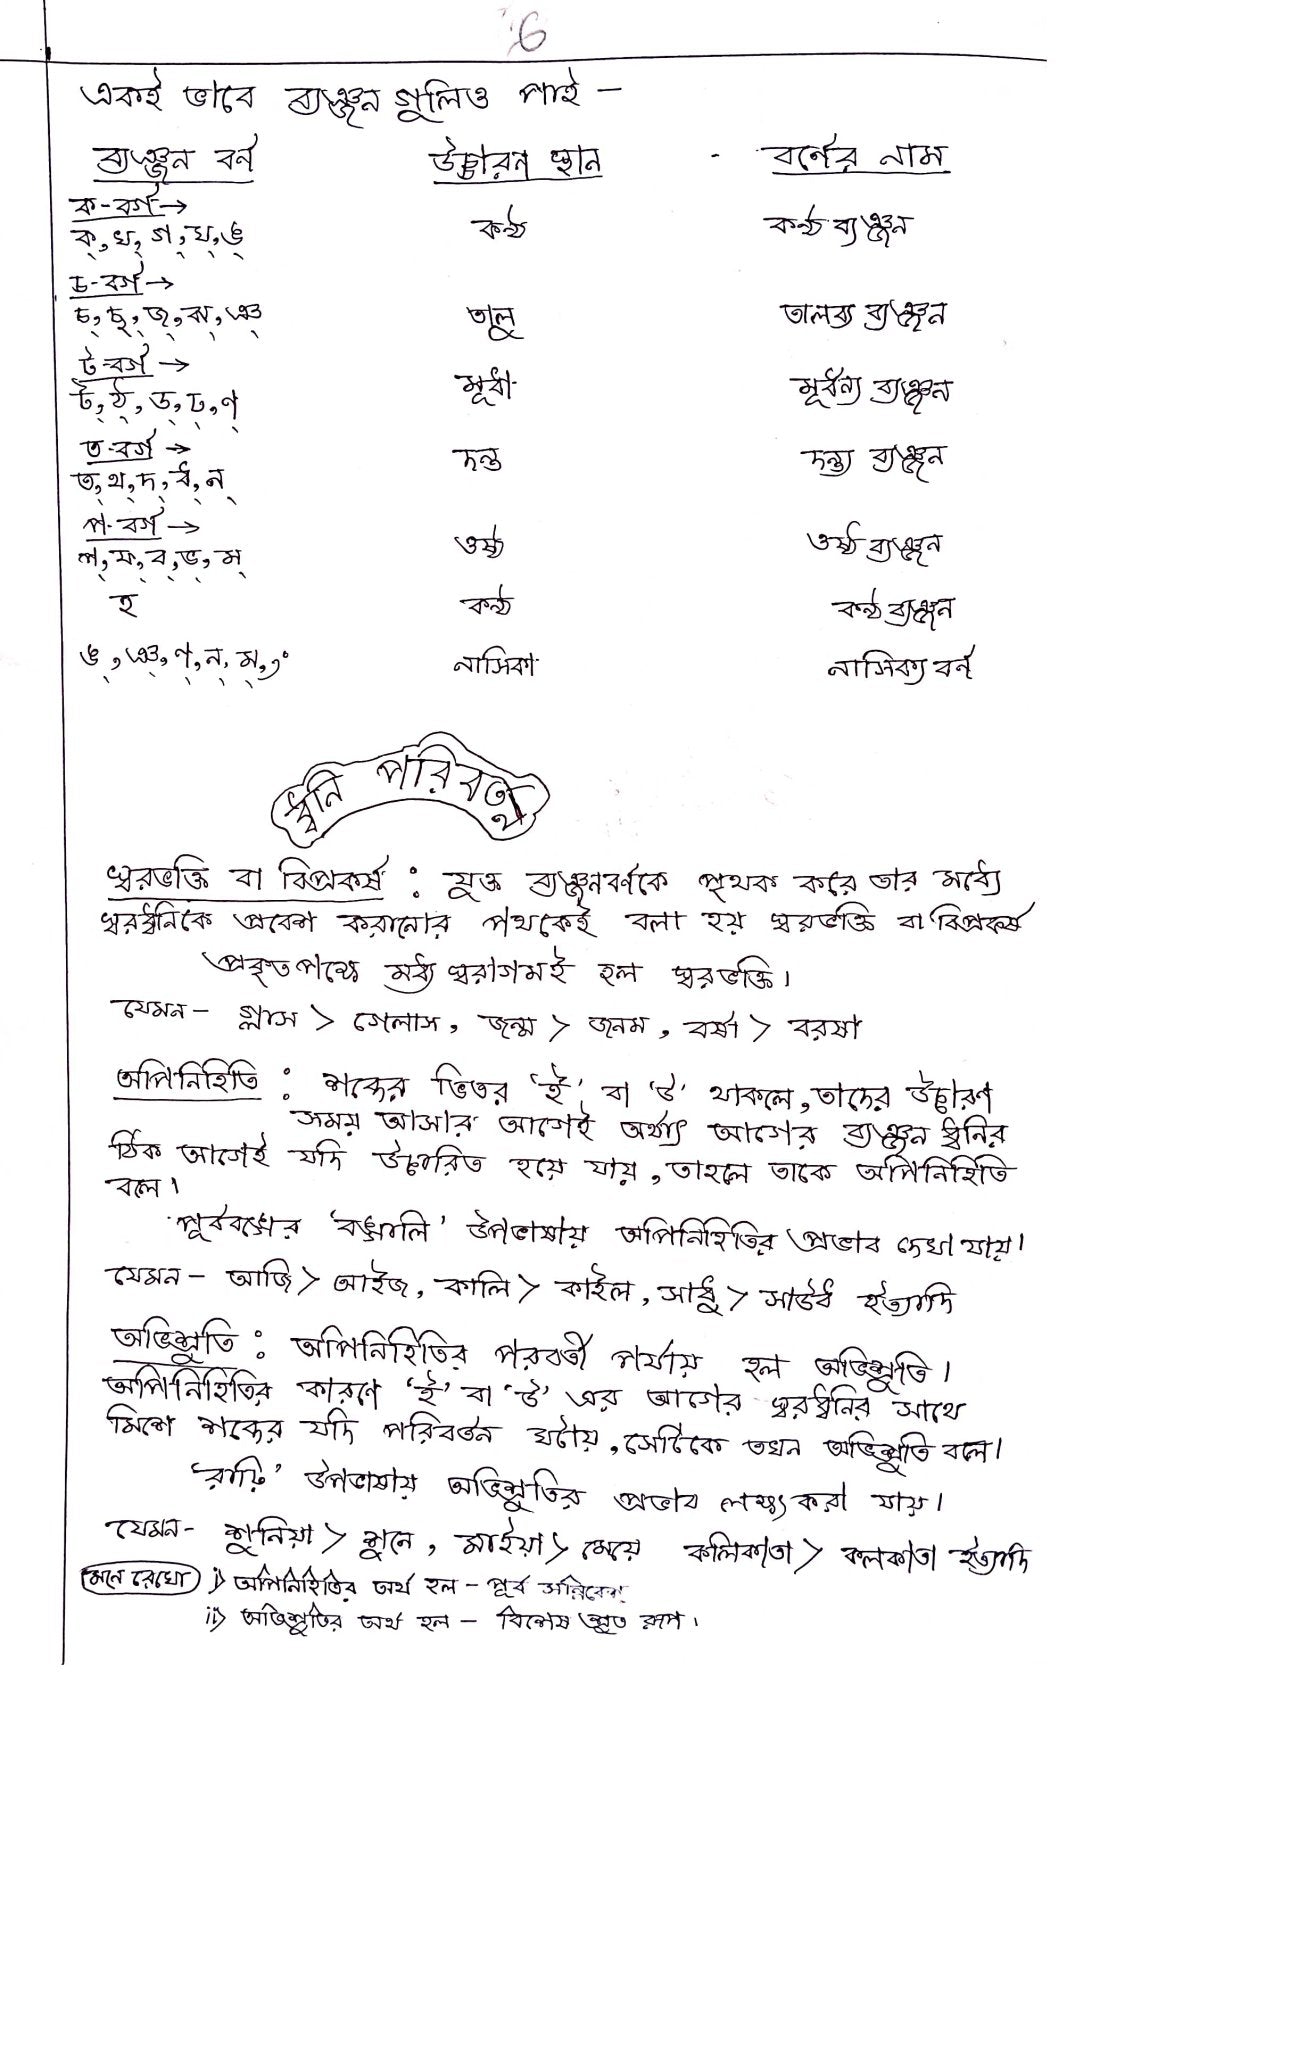 6
একই ভাবে ব্যঞ্জন গুলিও পাই –
ব্যঞ্জন বর্ন উচ্চারন স্থান বর্ণের নাম
ক-বর্গ →
ক্, খ্, গ্, ঘ্, ঙ্ কন্ঠ কন্ঠ ব্যঞ্জন
চ-বর্গ →
চ্, ছ্, জ্, ঝ্, ঞ্ তালু তালব্য ব্যঞ্জন
ট-বর্গ →
ট্, ঠ্, ড্, ঢ্, ণ্ মূর্ধা মূর্ধন্য ব্যঞ্জন
ত-বর্গ →
ত্, থ্, দ্, ধ্, ন্ দন্ত দন্ত্য ব্যঞ্জন
প-বর্গ →
প্, ফ্, ব্, ভ্, ম্ ওষ্ঠ ওষ্ঠ ব্যঞ্জন
হ কন্ঠ কন্ঠ ব্যঞ্জন
ঙ্, ঞ্, ণ্, ন্, ম্, ং নাসিকা নাসিক্য বর্ন
ধ্বনি পরিবর্তন
স্বরভক্তি বা বিপ্রকর্ষ : যুক্ত ব্যঞ্জনবর্ণকে পৃথক করে তার মধ্যে
স্বরধ্বনিকে প্রবেশ করানোর পথকেই বলা হয় স্বরভক্তি বা বিপ্রকর্ষ
প্রকৃতপক্ষে মধ্য স্বরাগমই হল স্বরভক্তি।
যেমন – গ্লাস > গেলাস, জন্ম > জনম, বর্ষা > বরষা
অপিনিহিতি : শব্দের ভিতর 'ই' বা 'উ' থাকলে, তাদের উচ্চারণ
সময় আসার আগেই অর্থাৎ আগের ব্যঞ্জন ধ্বনির
ঠিক আগেই যদি উচ্চারিত হয়ে যায়, তাহলে তাকে অপিনিহিতি
বলে।
পূর্ববঙ্গের 'বঙ্গালি' উপভাষায় অপিনিহিতির প্রভাব দেখা যায়।
যেমন – আজি > আইজ, কালি > কাইল, সাধু > সাউধ ইত্যাদি
অভিশ্রুতি : অপিনিহিতির পরবর্তী পর্যায় হল অভিশ্রুতি।
অপিনিহিতির কারণে 'ই' বা 'উ' এর আগের স্বরধ্বনির সাথে
মিশে শব্দের যদি পরিবর্তন ঘটায়, সেটিকে তখন অভিশ্রুতি বলে।
'রাঢ়ি' উপভাষায় অভিশ্রুতির প্রভাব লক্ষ্য করা যায়।
যেমন – শুনিয়া > শুনে, মাইয়া > মেয়ে কলিকাতা > কলকাতা ইত্যাদি
মনে রেখো i) অপিনিহিতির অর্থ হল – পূর্ব সন্নিবেশ
ii) অভিশ্রুতির অর্থ হল – বিশেষ শ্রুত রূপ।